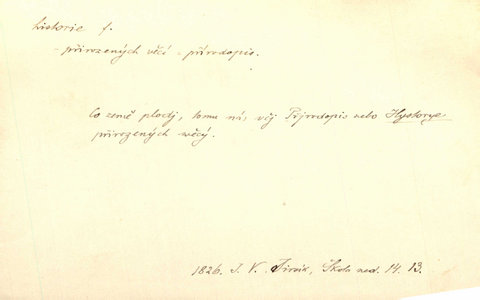 historie f.
- přirozených věcí - přírodopis.
Co země plodj, tomu nás včj Přjrodopis nebo Hystorye
přirozených wěcý.
1826. J. V. Jirsík, Škola ned. 14. 13.